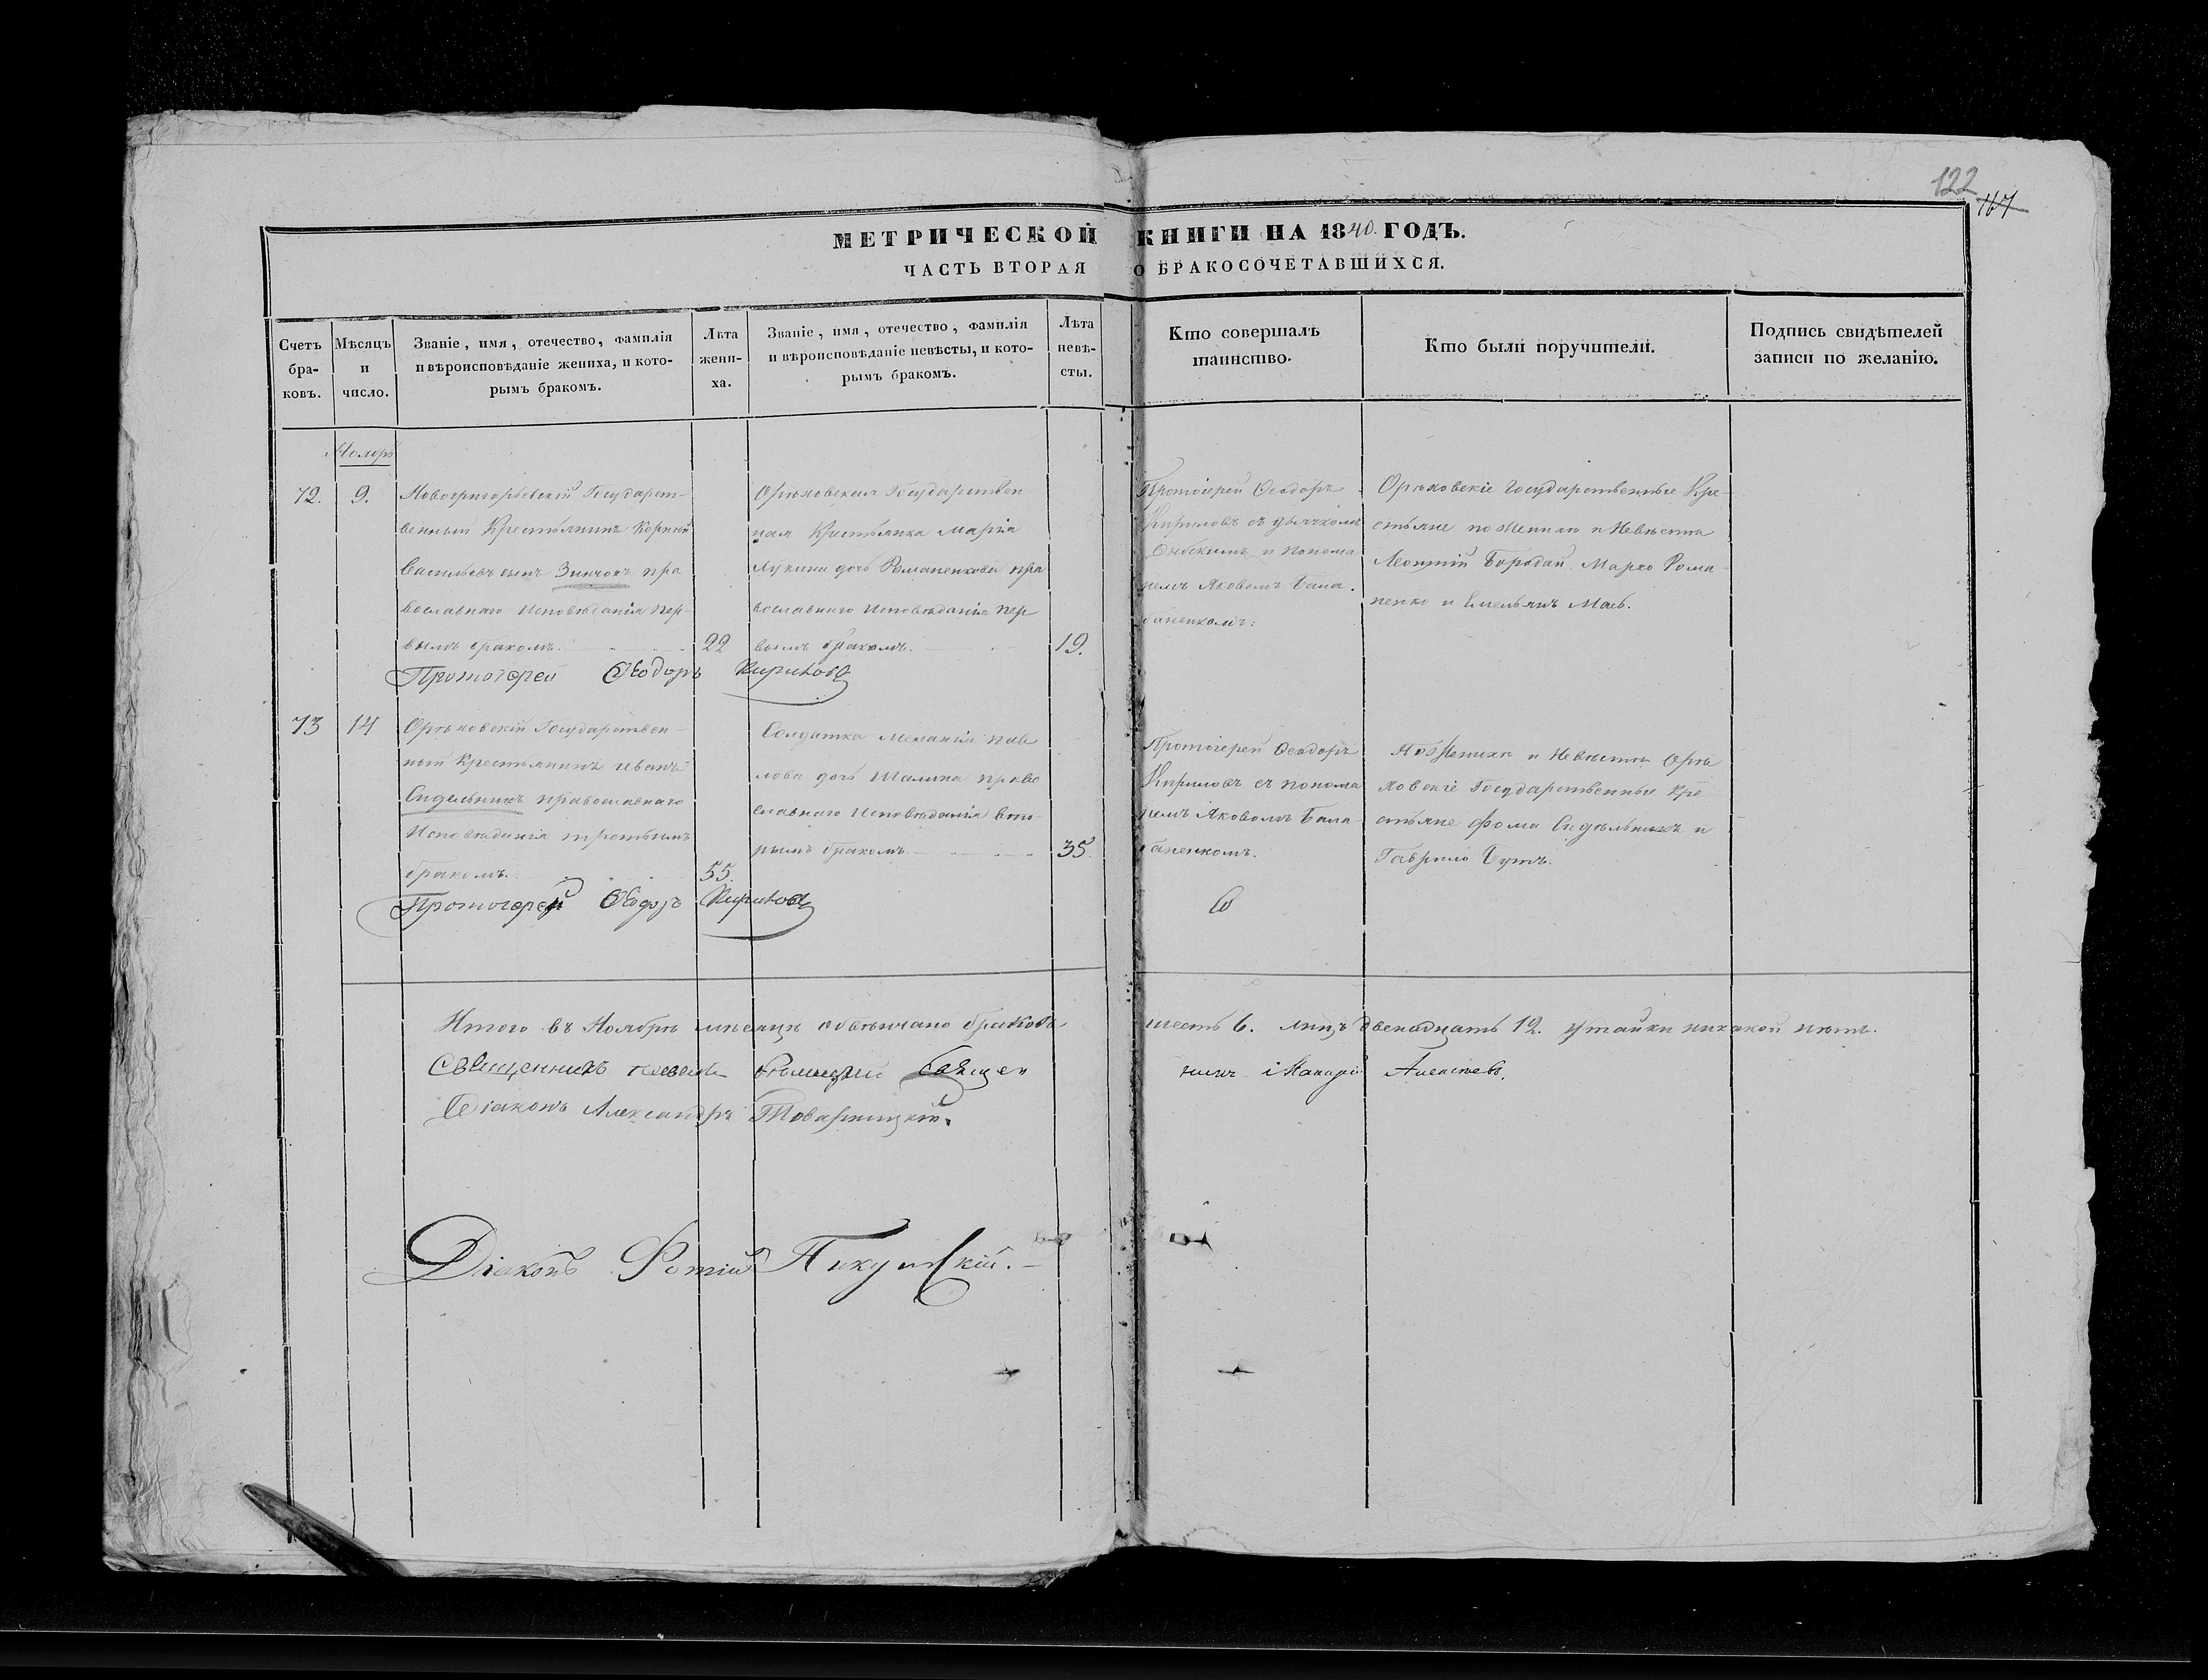 122
167
МЕТРИЧЕСКОЙ КНИГИ НА 1840. ГОДЪ.
ЧАСТЬ ВТОРАЯ О БРАКОСОЧЕТАВШИХСЯ.
Счетъ бра-ковъ.
Мѣсяцъ и число.
Званіе, имя, отечество, фамилія
и вѣроисповѣданіе жениха, и кото-
рымъ бракомъ.
Лѣта жени-ха.
Званіе, имя, отечество, фамилія
и вѣроисповѣданіе невѣсты, и кото-
рымъ бракомъ.
Лѣта невѣ-сты.
Кто совершалъ
таинство.
Кто были поручители.
Подпись свидѣтелей
записи по желанію.
72.
9.
Новогригорьевскій Государст-
венный Крестьянинъ Корнѣй
Васильевъ сынъ Зинчокъ пра
вославнаго Исповѣданія пер-
вымъ бракомъ.
22
Орѣховская Государствен
ная Крестьянка Марія
Лукина дочь Романенкова пра
вославнаго Исповѣданія пер
вымъ бракомъ.
19.
Протоіерей Ѳеодоръ
Кириловъ съ дьячкомъ
и понома
ремъ Яковомъ Бала-
баненкомъ:
Орѣховскіе Государственные Кре-
стьяне по Женихѣ и Невѣстѣ
Леонтій Бородай Марко Рома-
ненко и Емельянъ
Протоіерей Ѳеодоръ Кириловъ
73
14
Орѣховскій Государствен-
ный Крестьянинъ Иванъ
Сидельникъ православнаго
Исповѣданія третьимъ
бракомъ.
55.
Солдатка Меланія Пав
лова дочь Шалина право
славнаго Исповѣданія вто-
рымъ бракомъ.
35
Протоіерей Ѳеодоръ
Кириловъ съ понома
ремъ Яковомъ Бала-
баненкомъ.
По Женихѣ и Невѣстѣ Орѣ
ховскіе Государственные Кре-
стьяне Фома Сидѣльникъ и
Гаврило Бутъ.
Протоіерей Ѳеодоръ Кириловъ
Итого въ Ноябрѣ мѣсяцѣ обвѣнчано браковъ шесть 6. лицъ двенадцать 12. Утайки никакой нѣтъ.
Священникъ Священ
никъ Алексѣевъ.
Діаконъ Александръ Товарницкій.
Діаконъ Фотій Пикульскій.